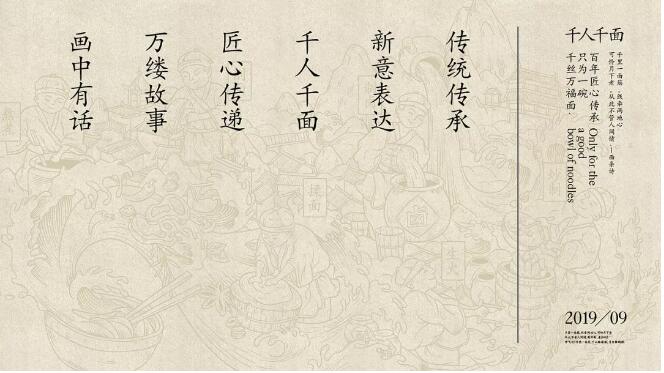 千人千面
千里一面筋，线牵两地心
可怜月下老，从此不管人间情。—面条诗
百年匠心 传承
只为一碗
千丝万福面.
Only for the
a good
bowl of noodles
2019/09
传统传承
新意表达
千人千面
匠心传递
万缕故事
画中有话
揉面
生火